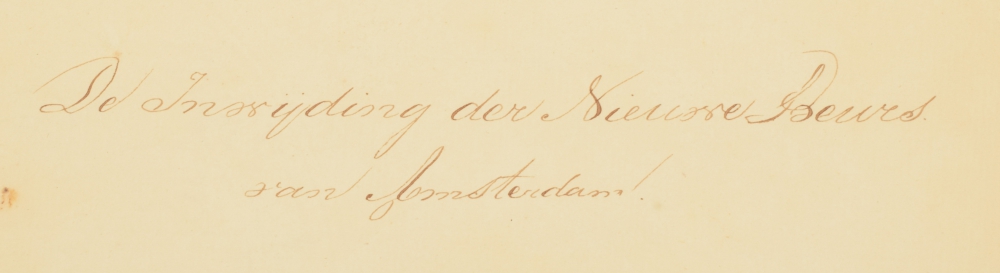 De Inwijding der Nieuwe Beurs.
van Amsterdam.